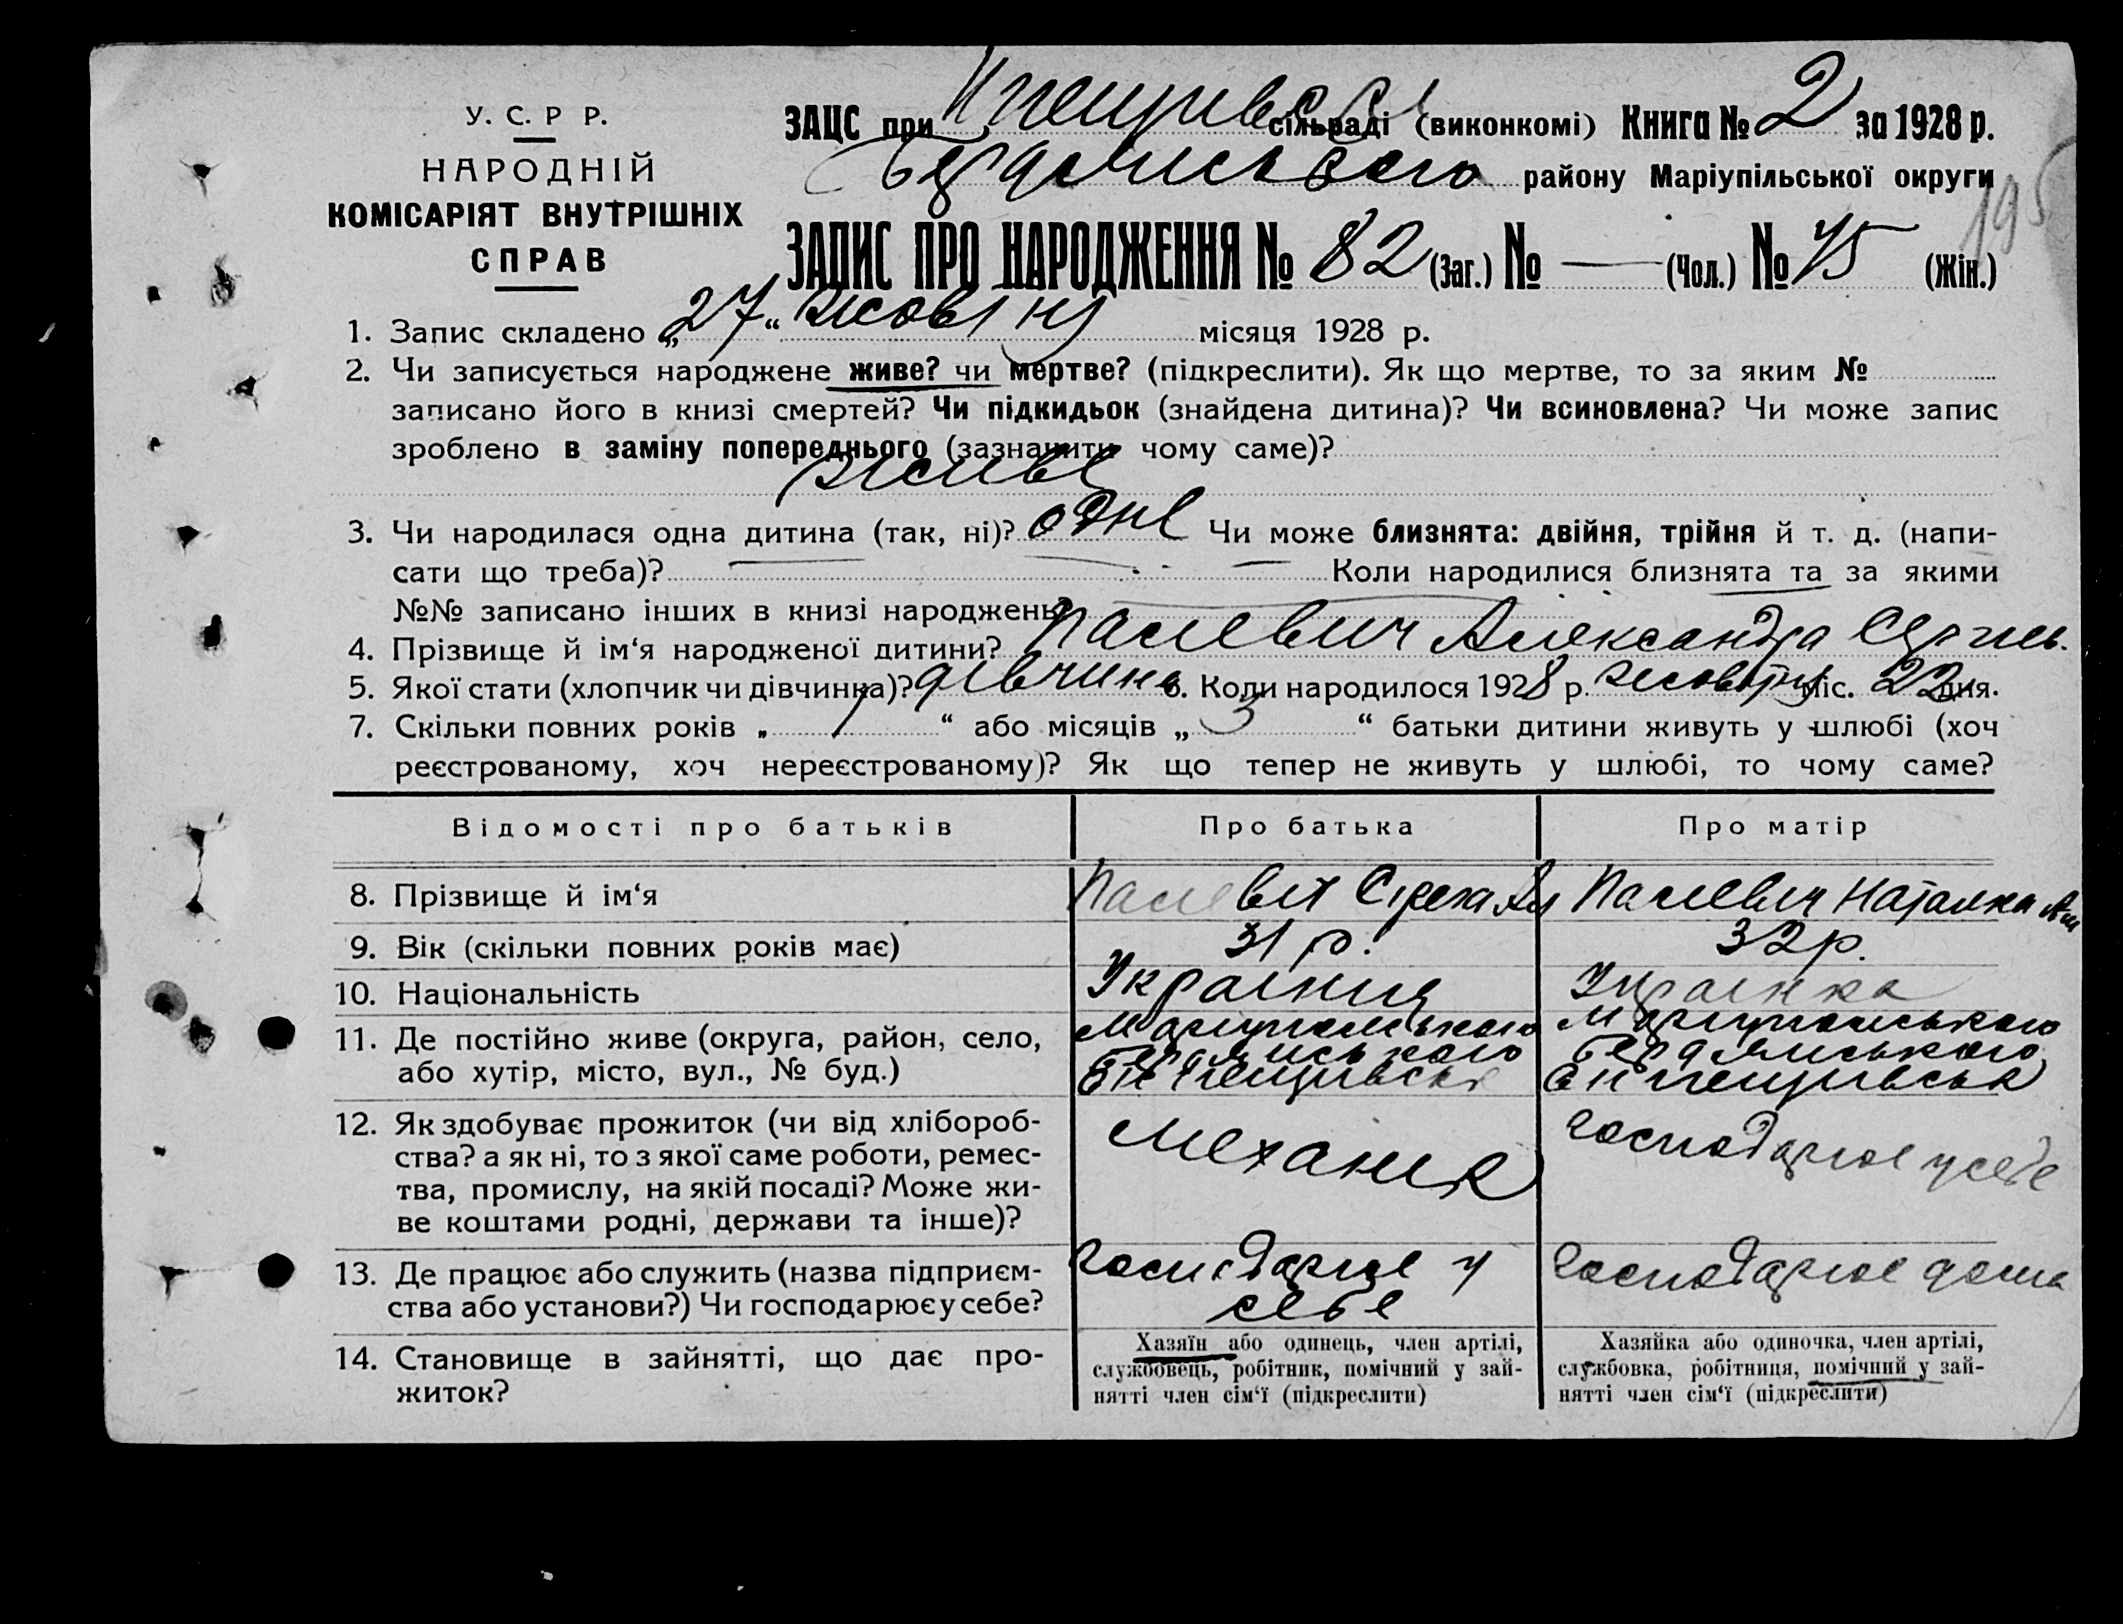 У. С. Р Р.
НАРОДНІЙ
КОМІСАРІЯТ ВНУТРІШНІХ
СПРАВ
ЗАЦС при сільраді (виконкомі) Книга № 2 за 1928 р.
Бердянського району Маріупільської округи
195
ЗАПИС ПРО НАРОДЖЕННЯ № 82 (Заг.) № — (Чол.) № 45 (Жін.)
1. Запис складено „27“ жовтня місяця 1928 р.
2. Чи записується народжене живе? чи мертве? (підкреслити). Як що мертве, то за яким №
записано його в книзі смертей? Чи підкидьок (знайдена дитина)? Чи всиновлена? Чи може запис
зроблено в заміну попереднього (зазначити чому саме)?
живе
3. Чи народилася одна дитина (так, ні)? одне Чи може близнята: двійня, трійня й т. д. (напи-
сати що треба)? Коли народилися близнята та за якими
№№ записано інших в книзі народжень?
4. Прізвище й ім‘я народженої дитини? Палевич Александра Сергиев.
5. Якої стати (хлопчик чи дівчинка)? дівчина 6. Коли народилося 1928 р. жовтня міс. 22 дня.
7. Скільки повних років „ / “ або місяців „ 3 “ батьки дитини живуть у шлюбі (хоч
реєстрованому, хоч нереєстрованому)? Як що тепер не живуть у шлюбі, то чому саме?
Відомості про батьків Про батька Про матір
8. Прізвище й ім‘я Палевич Палевич Наталка
9. Вік (скільки повних років має) 31 р. 32 р.
10. Національність Українця Українка
11. Де постійно живе (округа, район, село, Маріупольського Маріупольського
або хутір, місто, вул., № буд.) Бердянського Бердянського
12. Як здобуває прожиток (чи від хлібороб- механик господарює у себе
ства? а як ні, то з якої саме роботи, ремес-
тва, промислу, на якій посаді? Може жи-
ве коштами родні, держави та інше)?
13. Де працює або служить (назва підприєм- господарює у господарює дома
ства або установи?) Чи господарює у себе? себе
14. Становище в зайнятті, що дає про- Хазяїн або одинець, член артілі, Хазяйка або одиночка, член артілі,
житок? службовець, робітник, помічний у зай- службовка, робітниця, помічний у зай-
нятті член сім‘ї (підкреслити) нятті член сім‘ї (підкреслити)